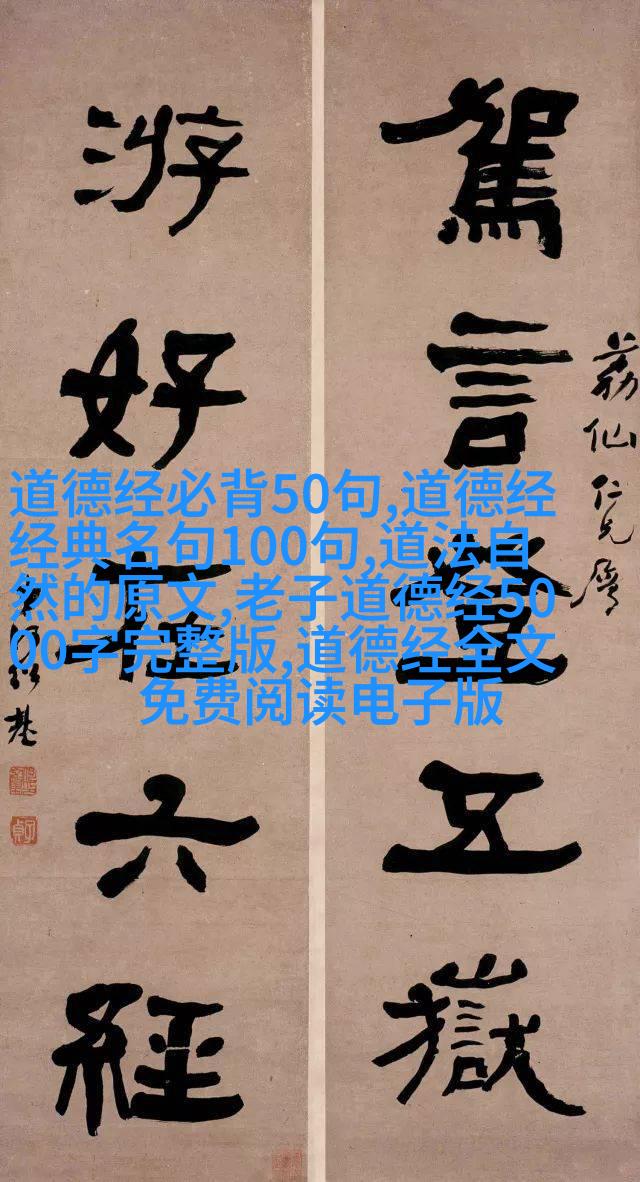 荔仙仁兄屬
駕言登五嶽
游好在六經
紹基
子貞
道德经必背50句,道德经
经典名句100句,道法自
然的原文,老子道德经50
00字完整版,道德经全文
免费阅读电子版